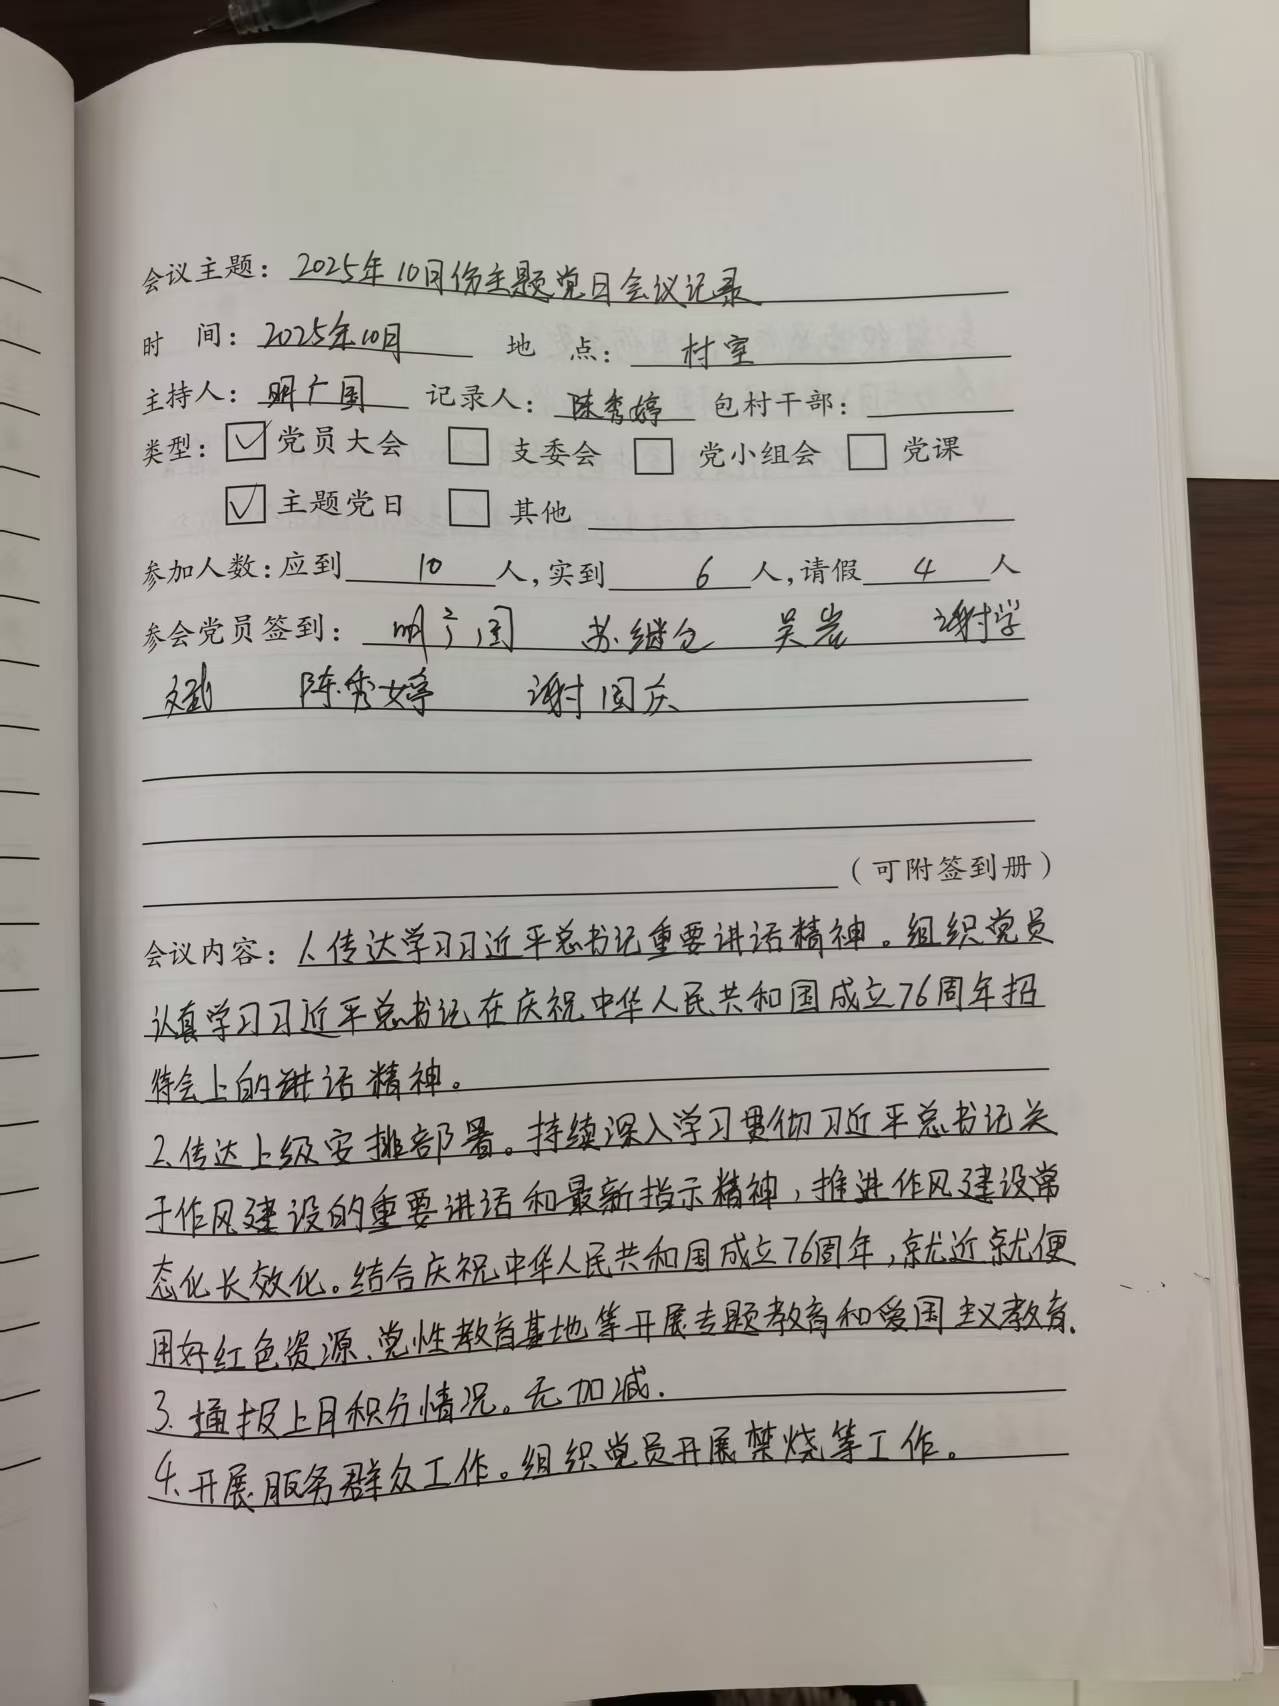 会议主题：2025年10月份主题党日会议记录
时 间：2025年10月 地 点：村室
主持人：明广国 记录人：陈秀婷 包村干部：
类型：☑党员大会 □支委会 □党小组会 □党课
☑主题党日 □其他
参加人数：应到10人，实到6人，请假4人
参会党员签到：明广国 苏继仓 吴岩 谢学
斌 陈秀婷 谢国庆
（可附签到册）
会议内容：1.传达学习习近平总书记重要讲话精神。组织党员
认真学习习近平总书记在庆祝中华人民共和国成立76周年招
待会上的讲话精神。
2.传达上级安排部署。持续深入学习贯彻习近平总书记关
于作风建设的重要讲话和最新指示精神，推进作风建设常
态化长效化。结合庆祝中华人民共和国成立76周年，就近就便
用好红色资源、党性教育基地等开展专题教育和爱国主义教育.
3.通报上月积分情况。无加减.
4.开展服务群众工作。组织党员开展禁烧等工作。